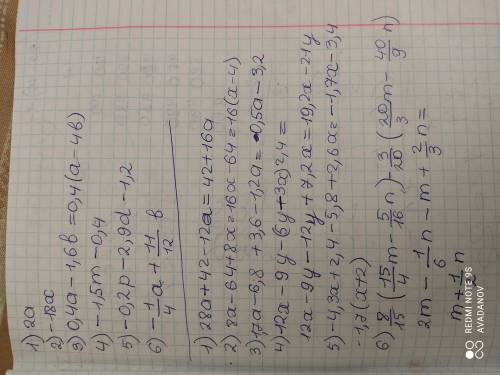 1) 2a
2) -18x
3) 0,4a-1,6b=0,4(a-4b)
4) -1,5m-0,4
5) -0,2p-2,9d-1,2
6) -1/4 a + 11/12 b
1) 28a+42-12a=42+16a
2) 8x-64+8x=16x-64=16(x-4)
3) 17a-6,8+3,6-1,2a=-0,5a-3,2
4) 12x-9y-(5y+3x)2,4=
12x-9y-12y+7,2x=19,2x-21y
5) -4,3x+2,4-5,8+2,6x=-1,7x-3,4
-1,7(x+2)
6) 8/15 (15/4 m - 5/16 n) - 3/20 (20/3 m - 40/9 n)
2m - 1/6 n - m + 2/3 n =
m + 1/2 n
REDMI NOTE 9S
AI QUAD CAMERA